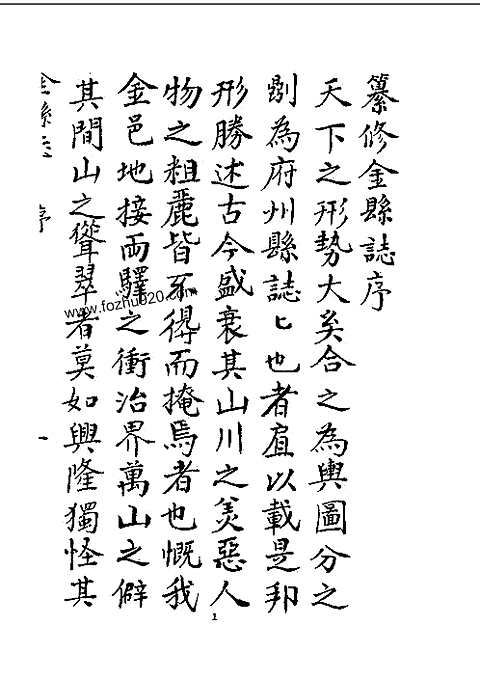 纂修金縣誌序
天下之形勢大矣合之為輿圖分之
劃為府州縣誌匕也者直以載是邦
形勝述古今盛衰其山川之美惡人
物之粗麗皆不得而掩焉者也慨我
金邑地接兩驛之衝治界萬山之僻
其間山之聳翠者莫如興隆獨怪其
金縣志 序 一
www.fozhu920.com
1